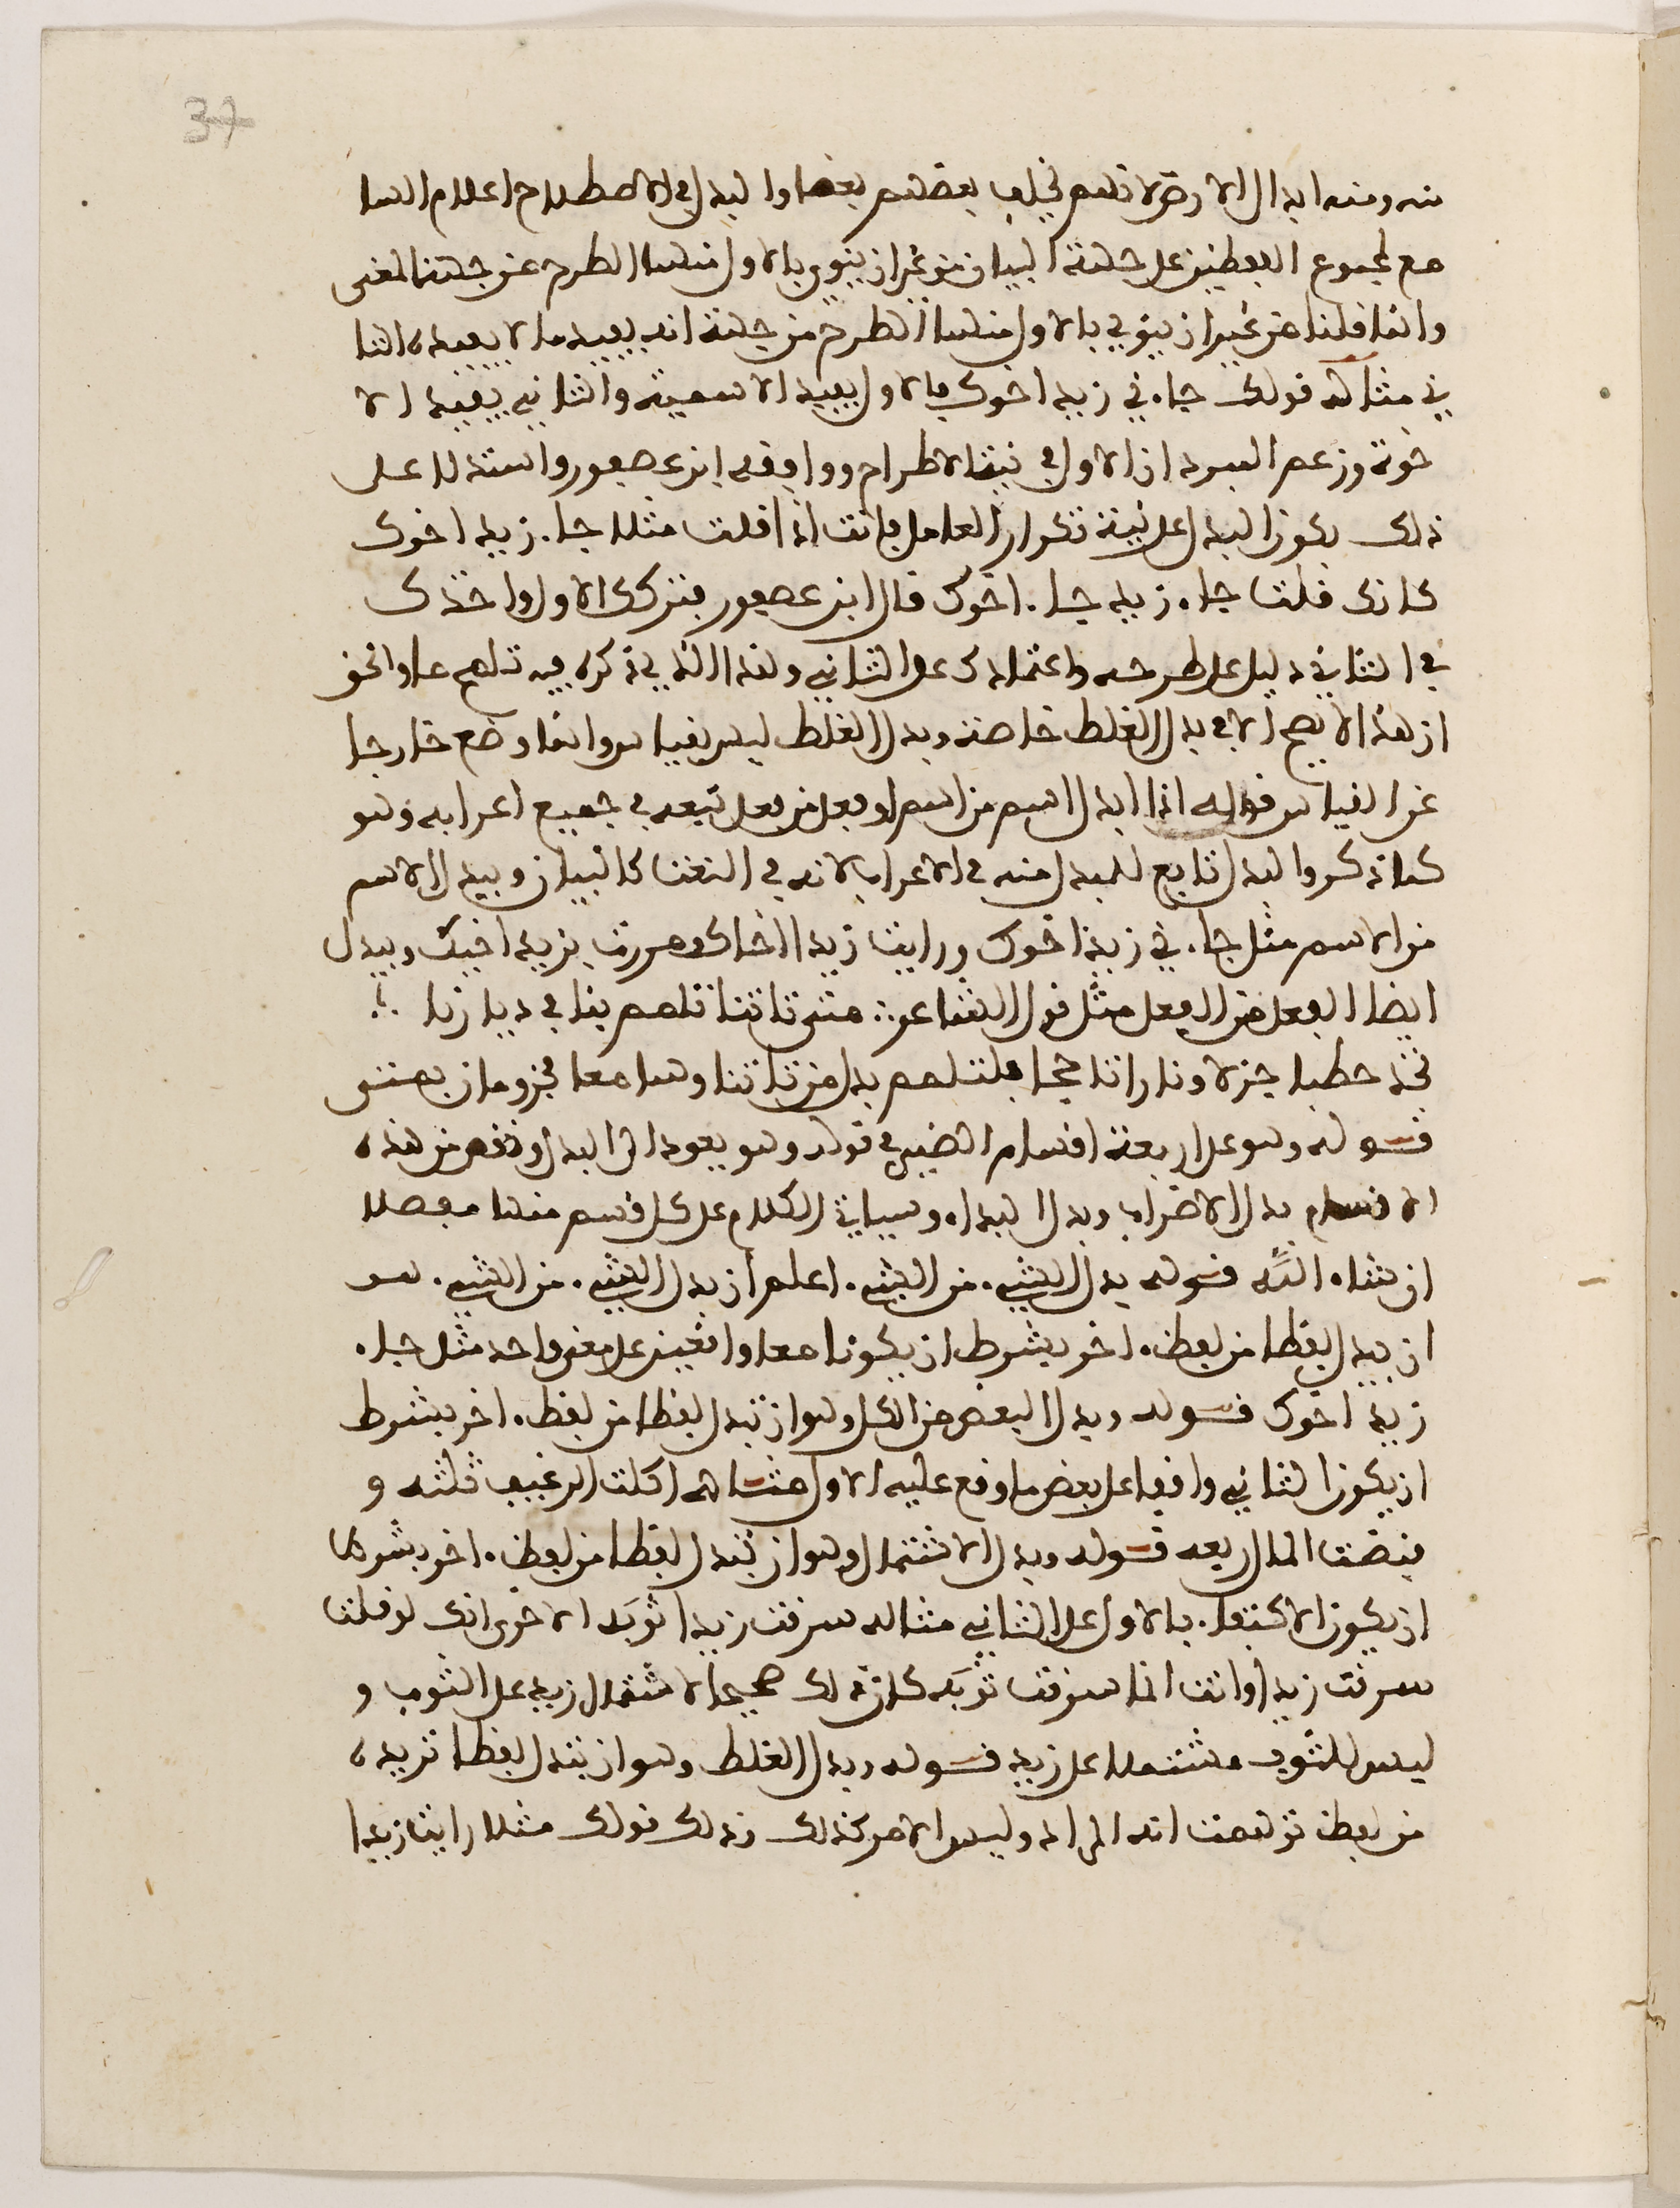 37
منه ومنه ابدال الارض لانهم يخلف بعضهم بعضا والبدل في الاصطلاح اعلام السا
مع لمجموع اللفظين على جهة البيان من غير ان ينوي بالاول منهما الطرح من جهة المعنى
وانما قلنا من غير ان ينوي بالاول منهما الطرح من جهة انه يفيد ما لا يفيده الثا
ني مثاله قولك جاءني زيد اخوك فالاول يفيد الاسمية والثاني يفيد الا
خوة وزعم المبرد ان الاول في نية الاطراح ووافقه ابن عصفور واستدلا على
ذلك بكون البدل على نية تكرار العامل فانت اذا قلت مثلا جاء زيد اخوك
كانك قلت جاء زيد جاء اخوك قال ابن عصفور فتركك الاول واخذك
في الثاني دليل على طرحه واعتمادك على الثاني وهذا الذي ذكره فيه تسامح والحق
ان هذا لا يصح الا في بدل الغلط خاصة وبدل الغلط ليس بقياس وانما وضع خارجا
عن القياس قوله اذا ابدل اسم من اسم او فعل من فعل تبعه في جميع اعرابه وهو
كما ذكر والبدل تابع للمبدل منه في الاعراب لانه في النعت كالبيان وبيدل الاسم
من الاسم مثل جاءني زيد اخوك ورايت زيدا اخاك ومررت بزيد اخيك وبيدل
ايضا الفعل من الفعل مثل قول الشاعر ∴ متى تاتنا تلمم بنا في ديارنا ∴
تجد حطبا جزلا ونارا تاججا فتلمم بدل من تاتنا وهما معا مجزومان بمتى
قوله وهو على اربعة اقسام الضمير في قوله وهو يعود الى البدل ونقص من هذه
الاقسام بدل الاضراب وبدل البداء وسياتي الكلام على كل قسم منها مفصلا
ان شاء الله قوله بدل الشيء من الشيء اعلم ان بدل الشيء من الشيء هو
ان يبدل لفظا من لفظ اخر بشرط ان يكونا معا واقعين على معنى واحد مثل جاء
زيد اخوك قوله وبدل البعض من الكل وهو ان تبدل لفظا من لفظ اخر بشرط
ان يكون الثاني واقعا على بعض ما وقع عليه الاول مثاله اكلت الرغيف ثلثه و
قبضت المال ربعه قوله وبدل الاشتمال وهو ان تبدل لفظا من لفظ اخر بشرط
ان يكون الاكتفاء بالاول على الثاني مثاله سرقت زيدا ثوبَه الا ترى انك لو قلت
سرقت زيدا وانت انما سرقت ثوبَه كان ذلك صحيحا لاشتمال زيد على الثوب و
ليس الثوب مشتملا على زيد قوله وبدل الغلط وهو ان تبدل لفظا تريده
من لفظ توهمت انه المراد وليس الامر كذلك وذلك قولك مثلا رايت زيدا